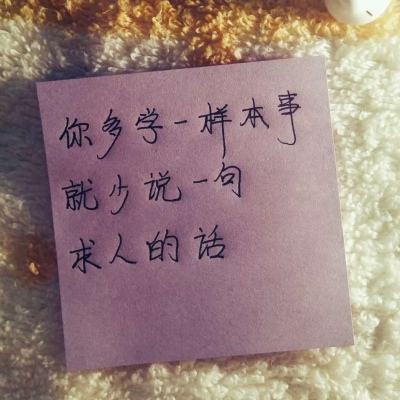 你多学一样本事
就少说一句
求人的话